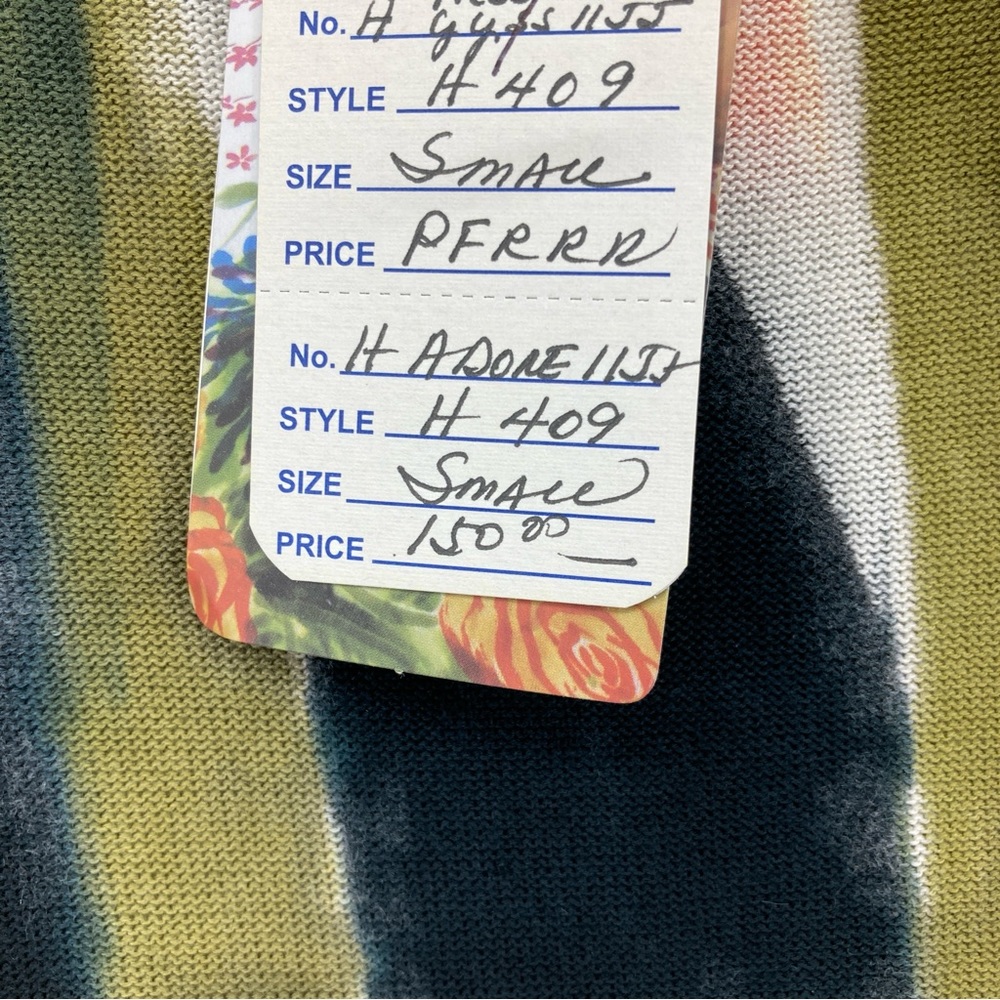 No. H 11JJ
STYLE H 409
SIZE SMALL
PRICE PFRRR
No. H ADORE 11JJ
STYLE H 409
SIZE SMALL
PRICE 150 00